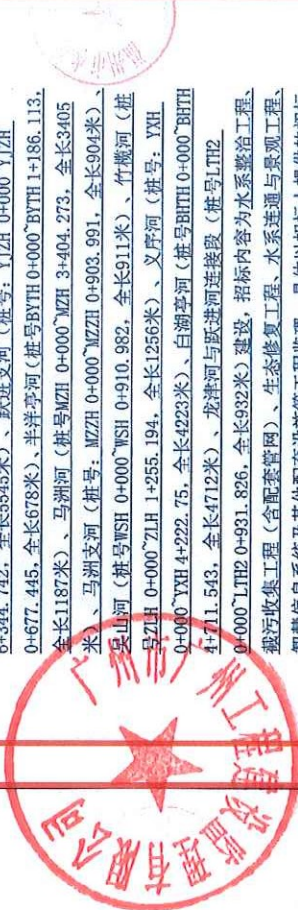 6+544.742, 全长5545米)、跃进支河(桩号: YJZH 0+000~YJZH
0+677.445, 全长678米)、半洋亭河(桩号BYTH 0+000~BYTH 1+186.113,
全长1187米)、马洲河(桩号MZH 0+000~MZH 3+404.273, 全长3405
米)、马洲支河(桩号: MZZH 0+000~MZZH 0+903.991, 全长904米)、
吴山河(桩号WSH 0+000~WSH 0+910.982, 全长911米)、竹榄河(桩
号ZLH 0+000~ZLH 1+255.194, 全长1256米)、义序河(桩号: YXH
0+000~YXH 4+222.75, 全长4223米)、白湖亭河(桩号BHTH 0+000~BHTH
4+711.543, 全长4712米)、龙津河与跃进河连接段(桩号LTH2
0+000~LTH2 0+931.826, 全长932米)建设, 招标内容为水系整治工程、
截污收集工程(含配套管网)、生态修复工程、水系连通与景观工程、
广州市广州工程建设监理有限公司